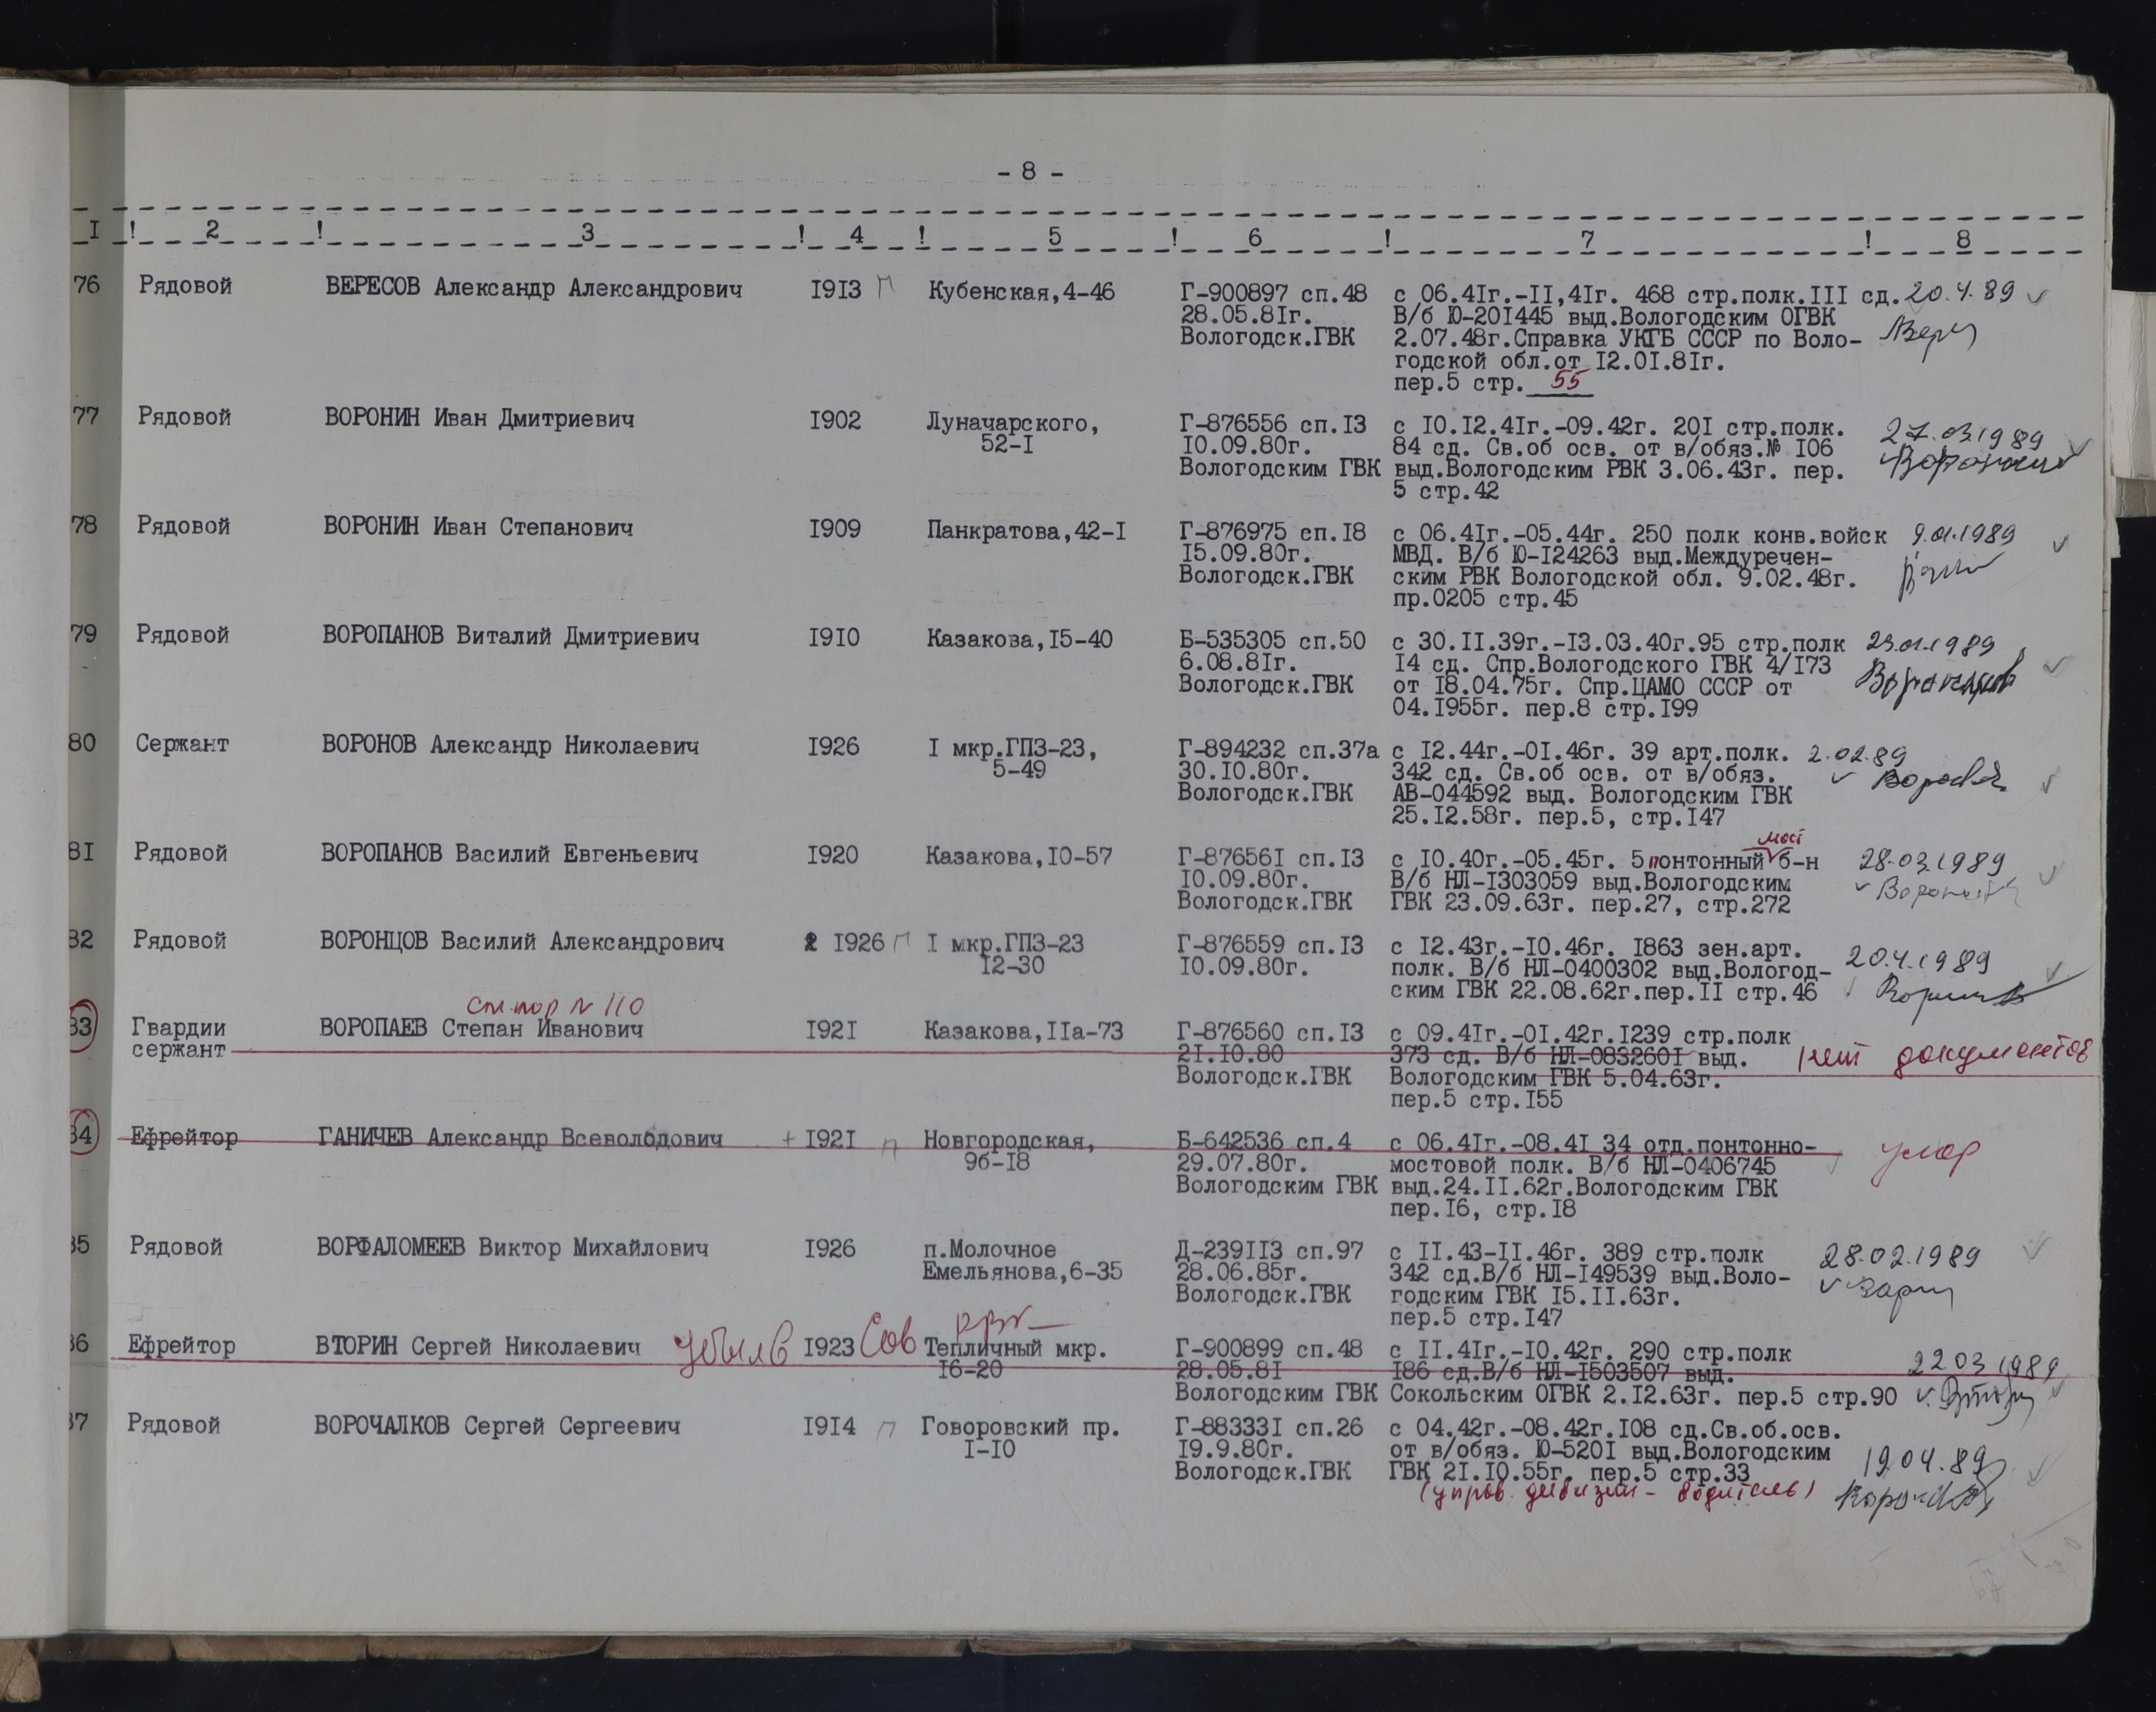 - 8 -
I ! 2 ! 3 ! 4 ! 5 ! 6 ! 7 ! 8
76 Рядовой ВЕРЕСОВ Александр Александрович I9I3 П Кубенская,4-46 Г-900897 сп.48 с 06.4Iг.-II,4Iг. 468 стр.полк.III сд. 20.4.89
28.05.8Iг. В/б Ю-20I445 выд.Вологодским ОГВК
Вологодск.ГВК 2.07.48г.Справка УКГБ СССР по Воло-
годской обл.от I2.0I.8Iг.
пер.5 стр. 55
77 Рядовой ВОРОНИН Иван Дмитриевич I902 Луначарского, Г-876556 сп.I3 с I0.I2.4Iг.-09.42г. 20I стр.полк. 27.03.1989
52-I I0.09.80г. 84 сд. Св.об осв. от в/обяз.№ I06
Вологодским ГВК выд.Вологодским РВК 3.06.43г. пер.
5 стр.42
78 Рядовой ВОРОНИН Иван Степанович I909 Панкратова,42-I Г-876975 сп.I8 с 06.4Iг.-05.44г. 250 полк конв.войск 9.01.1989
I5.09.80г. МВД. В/б Ю-I24263 выд.Междуречен-
Вологодск.ГВК ским РВК Вологодской обл. 9.02.48г.
пр.0205 стр.45
79 Рядовой ВОРОПАНОВ Виталий Дмитриевич I9I0 Казакова,I5-40 Б-535305 сп.50 с 30.II.39г.-I3.03.40г.95 стр.полк 23.01.1989
6.08.8Iг. I4 сд. Спр.Вологодского ГВК 4/I73
Вологодск.ГВК от I8.04.75г. Спр.ЦАМО СССР от
04.I955г. пер.8 стр.I99
80 Сержант ВОРОНОВ Александр Николаевич I926 I мкр.ГПЗ-23, Г-894232 сп.37а с I2.44г.-0I.46г. 39 арт.полк. 2.02.89
5-49 30.I0.80г. 342 сд. Св.об осв. от в/обяз.
Вологодск.ГВК АВ-044592 выд. Вологодским ГВК
25.I2.58г. пер.5, стр.I47
мост
8I Рядовой ВОРОПАНОВ Василий Евгеньевич I920 Казакова,I0-57 Г-87656I сп.I3 с I0.40г.-05.45г. 5 понтонный б-н 28.03.1989
I0.09.80г. В/б НЛ-I303059 выд.Вологодским
Вологодск.ГВК ГВК 23.09.63г. пер.27, стр.272
82 Рядовой ВОРОНЦОВ Василий Александрович I926 П I мкр.ГПЗ-23 Г-876559 сп.I3 с I2.43г.-I0.46г. I863 зен.арт. 20.4.1989
I2-30 I0.09.80г. полк. В/б НЛ-0400302 выд.Вологод-
ским ГВК 22.08.62г.пер.II стр.46
N 110
83 Гвардии ВОРОПАЕВ Степан Иванович I92I Казакова,IIа-73 Г-876560 сп.I3 с 09.4Iг.-0I.42г.I239 стр.полк
сержант 2I.I0.80 373 сд. В/б НЛ-083260I выд. нет документов
Вологодск.ГВК Вологодским ГВК 5.04.63г.
пер.5 стр.I55
84 Ефрейтор ГАНИЧЕВ Александр Всеволодович + I92I П Новгородская, Б-642536 сп.4 с 06.4Iг.-08.4I 34 отд.понтонно- умер
9б-I8 29.07.80г. мостовой полк. В/б НЛ-0406745
Вологодским ГВК выд.24.II.62г.Вологодским ГВК
пер.I6, стр.I8
85 Рядовой ВОРФАЛОМЕЕВ Виктор Михайлович I926 п.Молочное Д-239II3 сп.97 с II.43-II.46г. 389 стр.полк 28.02.1989
Емельянова,6-35 28.06.85г. 342 сд.В/б НЛ-I49539 выд.Воло-
Вологодск.ГВК годским ГВК I5.II.63г.
пер.5 стр.I47
РВК
86 Ефрейтор ВТОРИН Сергей Николаевич убыл в I923 Сов Тепличный мкр. Г-900899 сп.48 с II.4Iг.-I0.42г. 290 стр.полк 22 03 1989
I6-20 28.05.8I I86 сд.В/б НЛ-I503507 выд.
Вологодским ГВК Сокольским ОГВК 2.I2.63г. пер.5 стр.90
87 Рядовой ВОРОЧАЛКОВ Сергей Сергеевич I9I4 П Говоровский пр. Г-88333I сп.26 с 04.42г.-08.42г.I08 сд.Св.об.осв.
I-I0 I9.9.80г. от в/обяз. Ю-520I выд.Вологодским 19.04.89
Вологодск.ГВК ГВК 2I.I0.55г. пер.5 стр.33
(управ. дивизии - водитель)